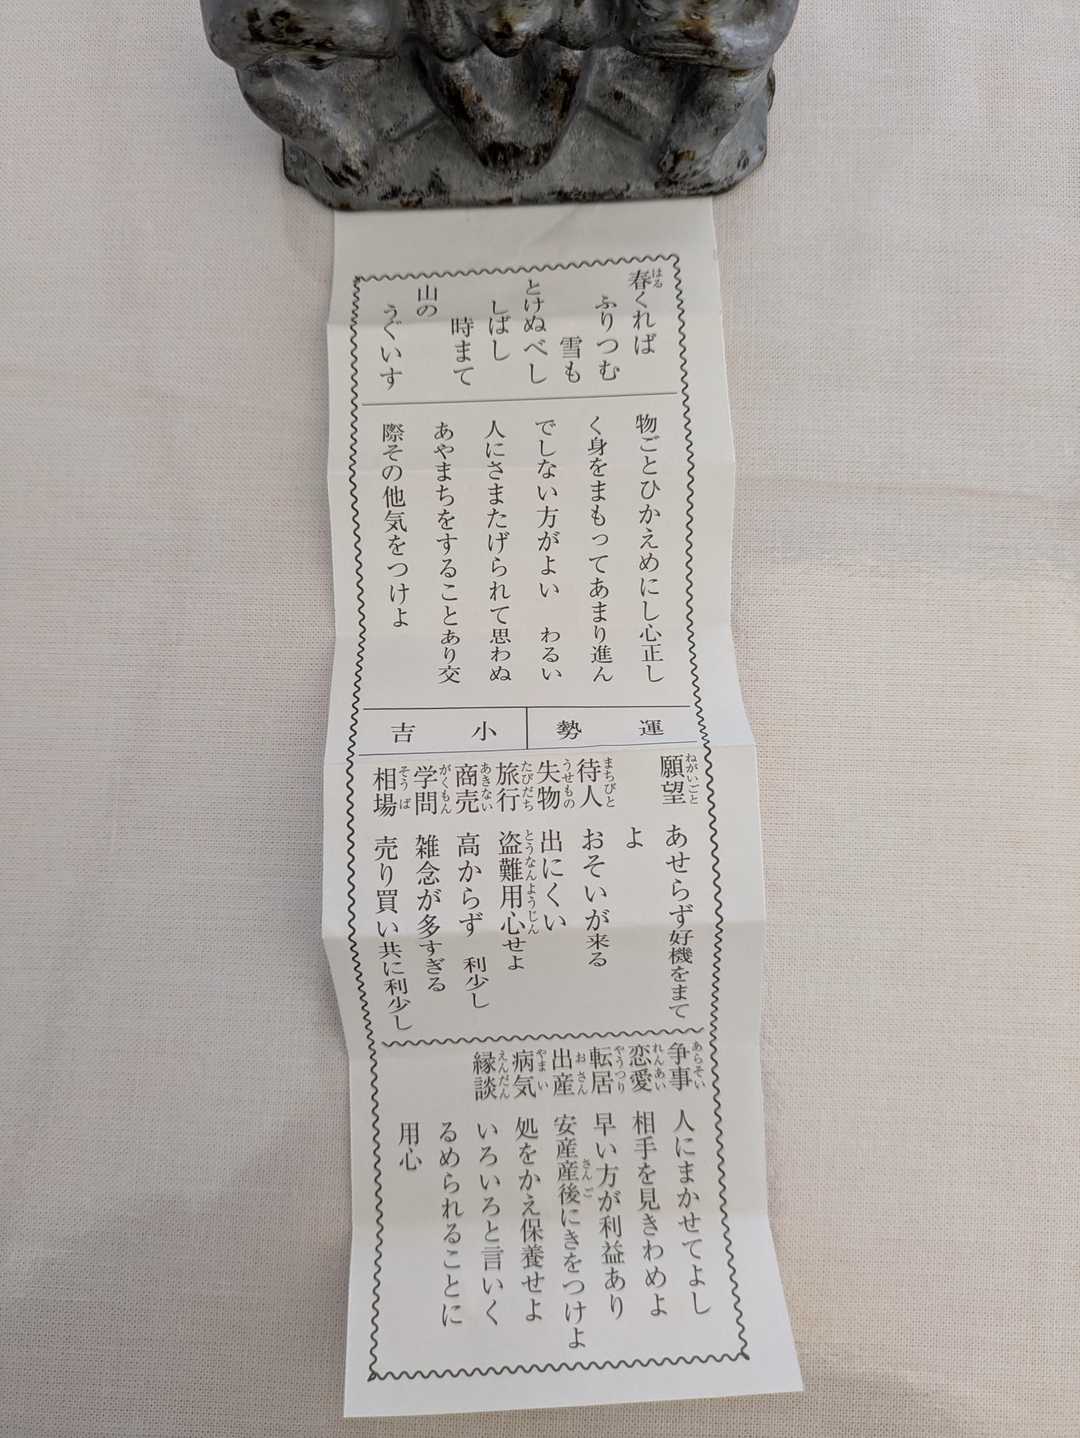 春くれば
ふりつむ
雪も
とけぬべし
しばし
時まて
山の
うぐいす
物ごとひかえめにし心正し
く身をまもってあまり進ん
でしない方がよい　わるい
人にさまたげられて思わぬ
あやまちをすることあり交
際その他気をつけよ
運勢
小吉
願望　あせらず好機をまて
よ
待人　おそいが来る
失物　出にくい
旅行　盗難用心せよ
商売　高からず　利少し
学問　雑念が多すぎる
相場　売り買い共に利少し
争事　人にまかせてよし
恋愛　相手を見きわめよ
転居　早い方が利益あり
出産　安産産後にきをつけよ
病気　処をかえ保養せよ
縁談　いろいろと言いく
るめられることに
用心